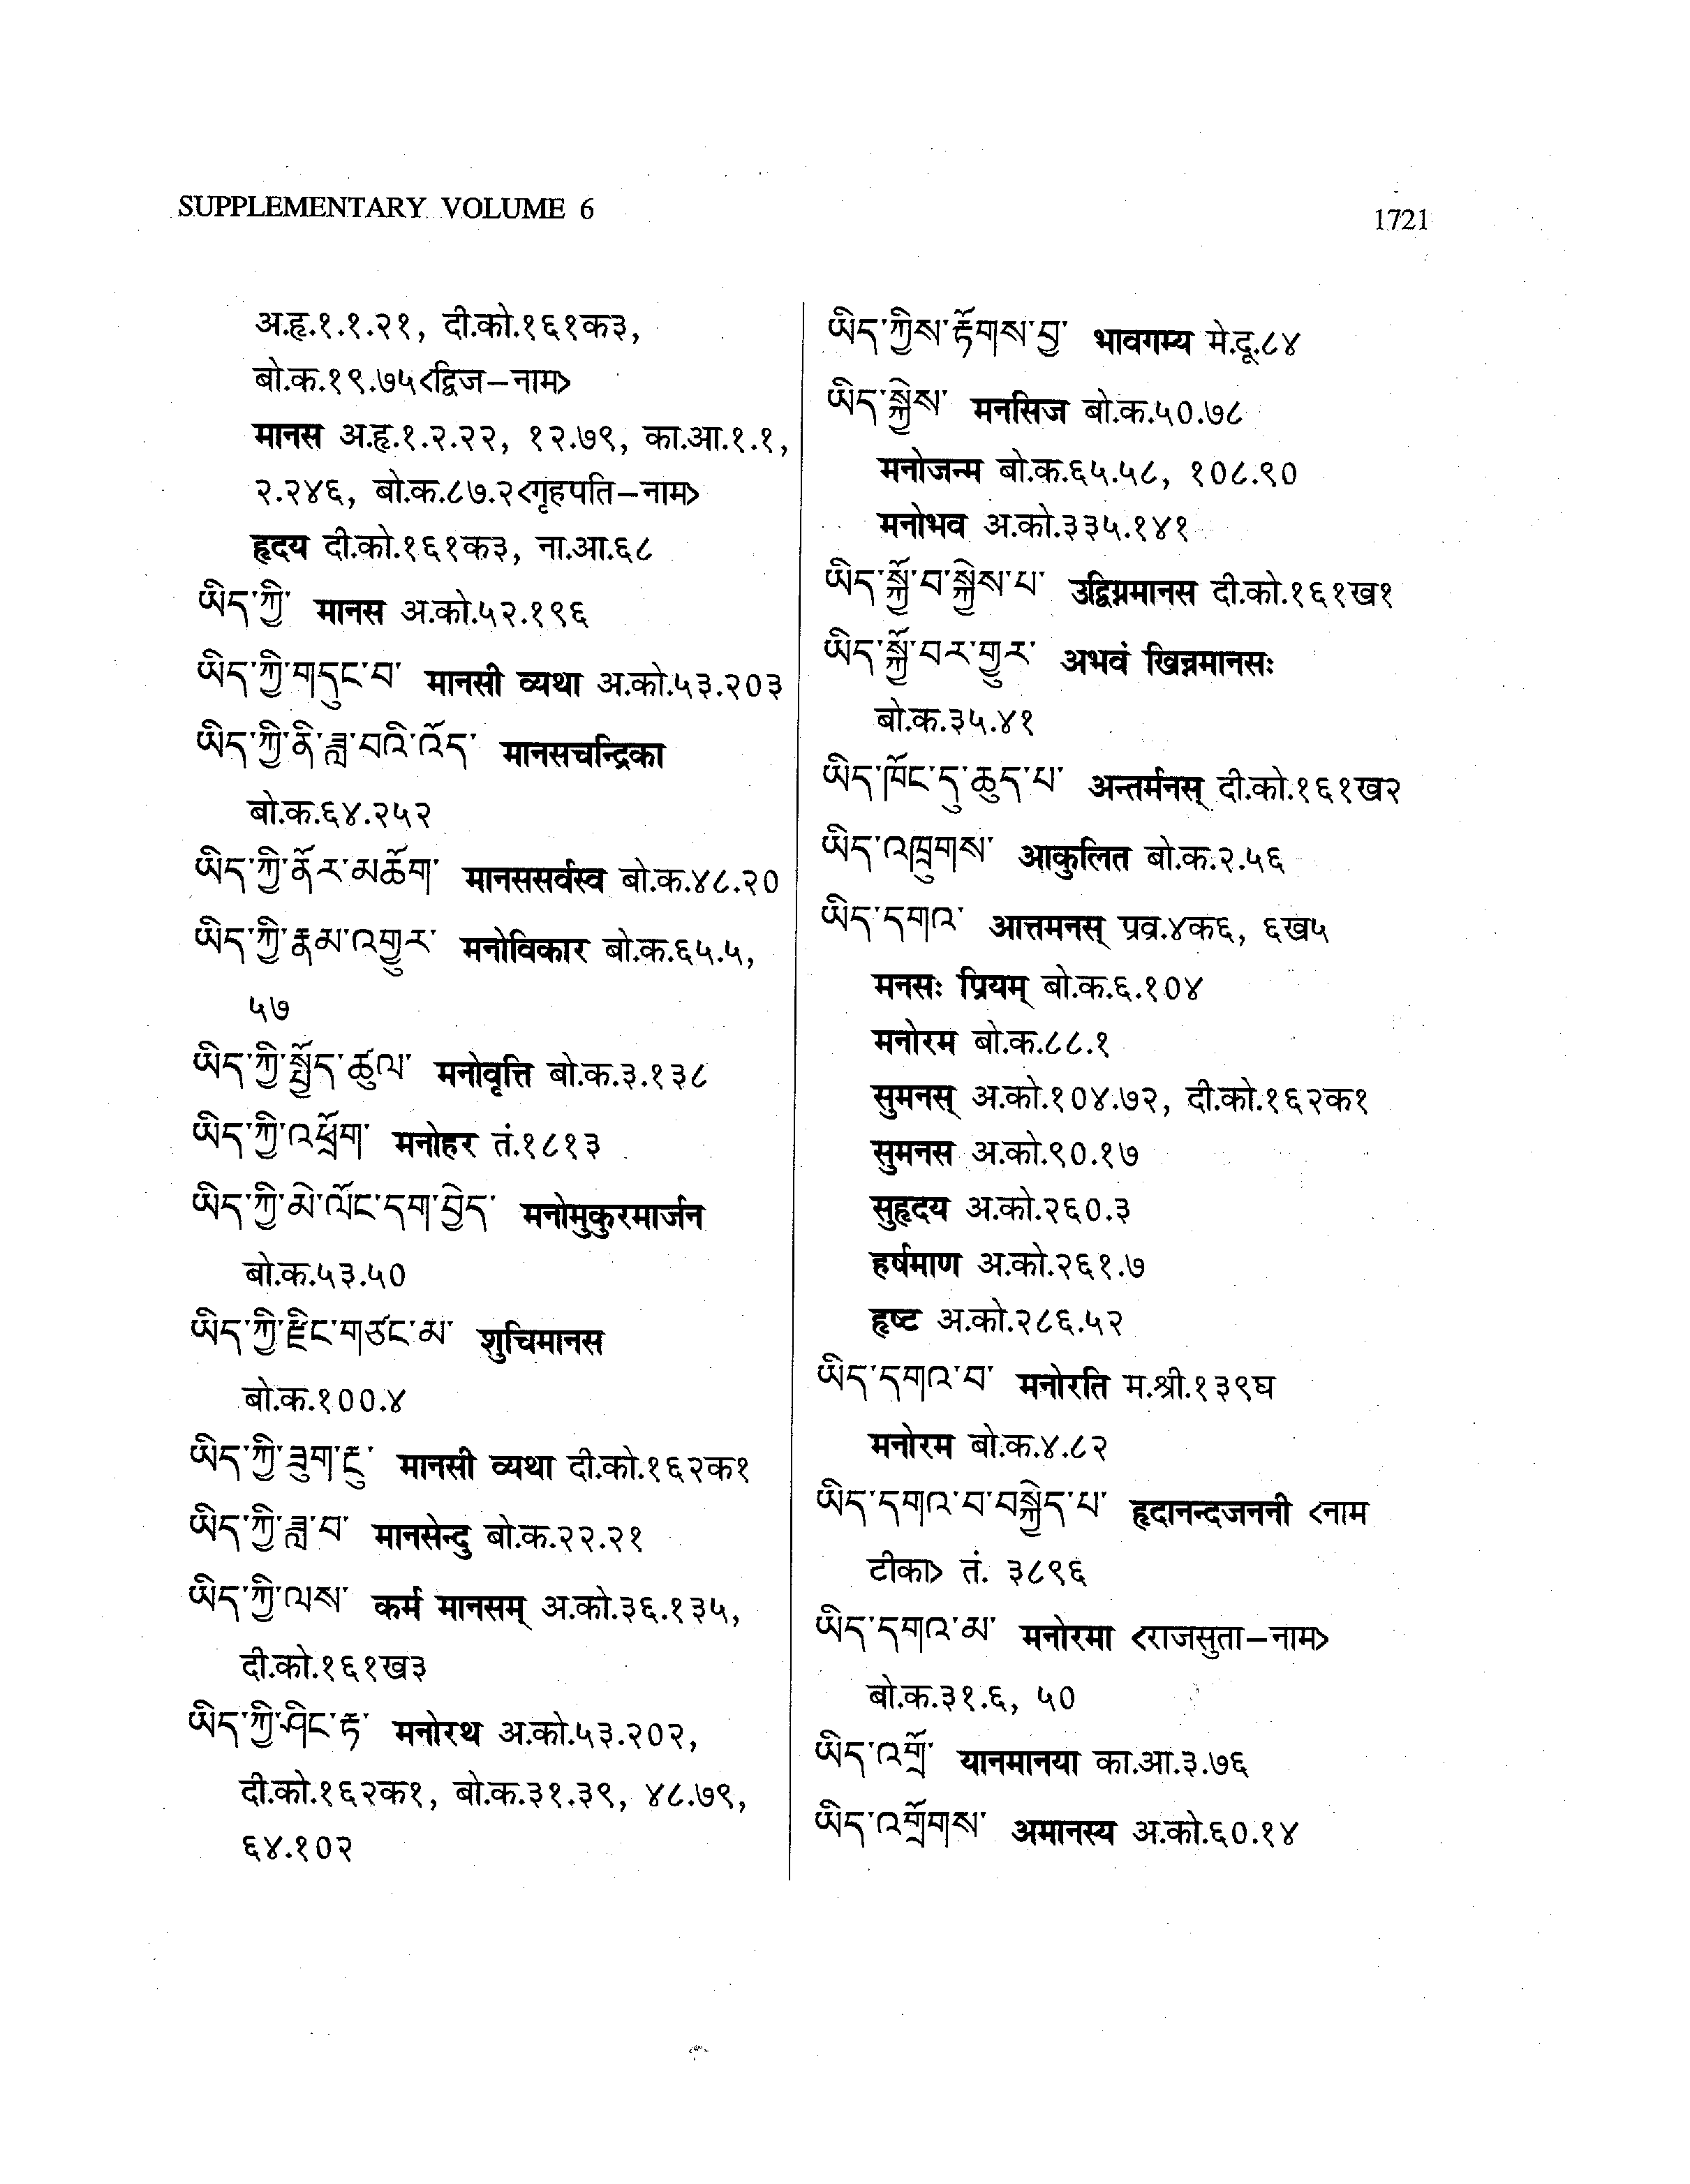 SUPPLEMENTARY VOLUME 6
1721
अ.हृ.१.१.२१, दी.को.१६१क३,
बो.क.१९.७५<द्विज–नाम>
मानस अ.हृ.१.२.२२, १२.७९, का.आ.१.१,
२.२४६, बो.क.८७.२<गृहपति–नाम>
हृदय दी.को.१६१क३, ना.आ.६८
ཡིད་ཀྱི་ मानस अ.को.५२.१९६
ཡིད་ཀྱི་གདུང་བ་ मानसी व्यथा अ.को.५३.२०३
ཡིད་ཀྱི་ནི་ཟླ་བའི་འོད་ मानसचन्द्रिका
बो.क.६४.२५२
ཡིད་ཀྱི་ནོར་མཆོག་ मानससर्वस्व बो.क.४८.२०
ཡིད་ཀྱི་རྣམ་འགྱུར་ मनोविकार बो.क.६५.५,
५७
ཡིད་ཀྱི་སྤྱོད་ཚུལ་ मनोवृत्ति बो.क.३.१३८
ཡིད་ཀྱི་འཕྲོག་ मनोहर तं.१८१३
ཡིད་ཀྱི་མེ་ལོང་དག་བྱེད་ मनोमुकुरमार्जन
बो.क.५३.५०
ཡིད་ཀྱི་རྫིང་གཙང་མ་ शुचिमानस
बो.क.१००.४
ཡིད་ཀྱི་ཟུག་རྔུ་ मानसी व्यथा दी.को.१६२क१
ཡིད་ཀྱི་ཟླ་བ་ मानसेन्दु बो.क.२२.२१
ཡིད་ཀྱི་ལས་ कर्म मानसम् अ.को.३६.१३५,
दी.को.१६१ख३
ཡིད་ཀྱི་ཤིང་རྟ་ मनोरथ अ.को.५३.२०२,
दी.को.१६२क१, बो.क.३१.३९, ४८.७९,
६४.१०२
ཡིད་ཀྱིས་རྟོགས་བྱ་ भावगम्य मे.दू.८४
ཡིད་སྐྱེས་ मनसिज बो.क.५०.७८
मनोजन्म बो.क.६५.५८, १०८.९०
मनोभव अ.को.३३५.१४१
ཡིད་སྐྱོ་བ་སྐྱེས་པ་ उद्विग्नमानस दी.को.१६१ख१
ཡིད་སྐྱོ་བར་གྱུར་ अभवं खिन्नमानसः
बो.क.३५.४१
ཡིད་ཁོང་དུ་ཆུད་པ་ अन्तर्मनस् दी.को.१६१ख२
ཡིད་འཁྲུགས་ आकुलित बो.क.२.५६
ཡིད་དགའ་ आत्तमनस् प्रव्र.४क६, ६ख५
मनसः प्रियम् बो.क.६.१०४
मनोरम बो.क.८८.१
सुमनस् अ.को.१०४.७२, दी.को.१६२क१
सुमनस अ.को.९०.१७
सुहृदय अ.को.२६०.३
हर्षमाण अ.को.२६१.७
हृष्ट अ.को.२८६.५२
ཡིད་དགའ་བ་ मनोरति म.श्री.१३९घ
मनोरम बो.क.४.८२
ཡིད་དགའ་བ་བསྐྱེད་པ་ हृदानन्दजननी <नाम
टीका> तं. ३८९६
ཡིད་དགའ་མ་ मनोरमा <राजसुता–नाम>
बो.क.३१.६, ५०
ཡིད་འགྲོ་ यानमानया का.आ.३.७६
ཡིད་འགྲོགས་ अमानस्य अ.को.६०.१४